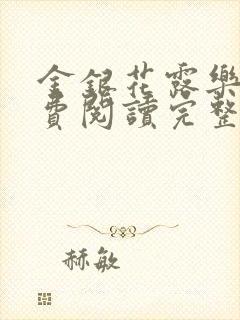 金銀花露樂
費閱讀完整
赫敏